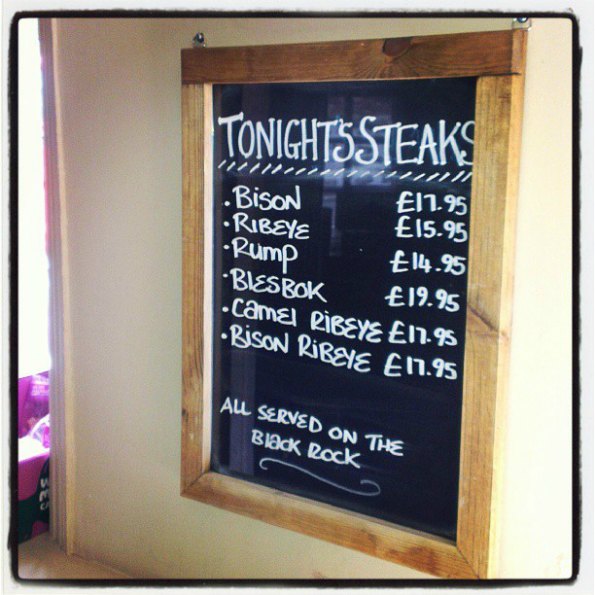 TONIGHT'S STEAKS
• BISON £17.95
• RIBEYE £15.95
• RUMP £14.95
• BLESBOK £19.95
• CAMEL RIBEYE £17.95
• BISON RIBEYE £17.95
ALL SERVED ON THE
BLACK ROCK